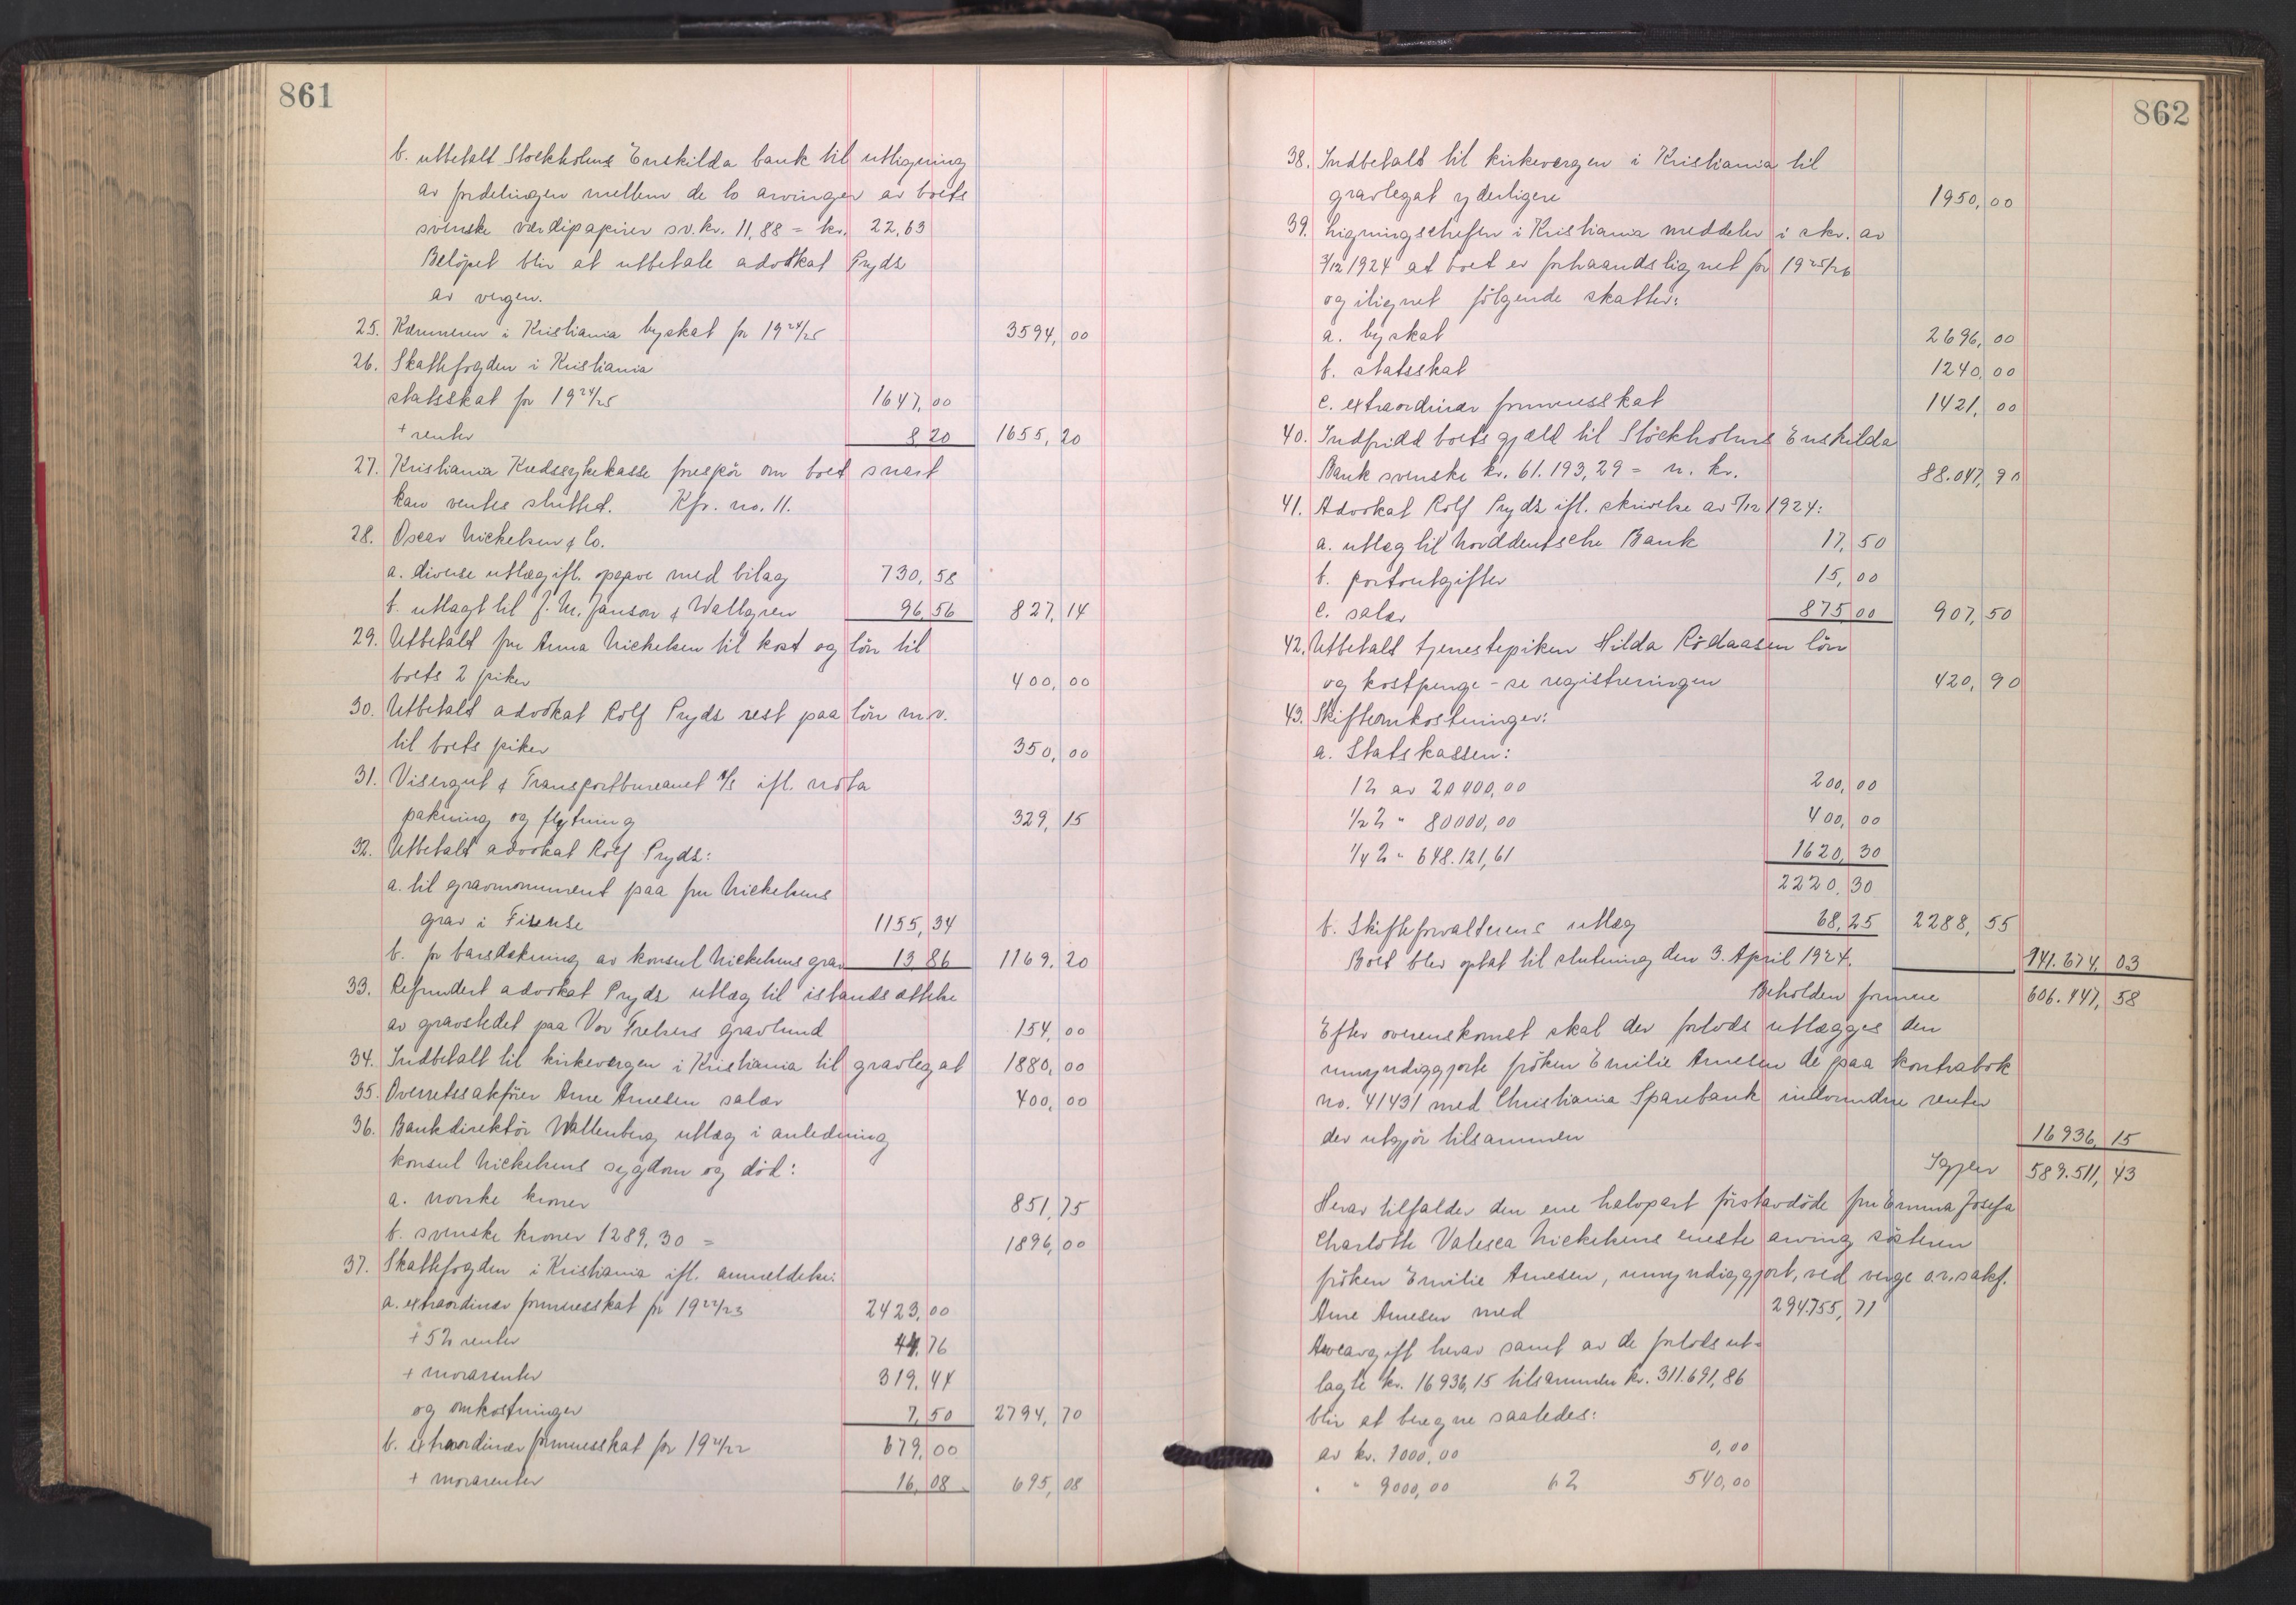 861
b. utbetalt Stockholms Enskilda bank til utligning
av fordelingen mellem de to arvinger av boets
svenske værdipapirer sv.kr. 11,88 = kr. 22,63
Beløpet blir at utbetale advokat Pryds
av vergen.
25. Kæmneren i Kristiania byskat for 19 24/25 3594,00
26. Skattefogden i Kristiania
statsskat for 19 24/25 1647,00
+ renter 8 20 1655,20
27. Kristiania Kredssykekasse forespør om boet snart
kan ventes sluttet. Kfr. no. 11.
28. Oscar Nickelsen & Co.
a. diverse utlæg ifl. opgave med bilag 730,58
b. utlagt til J. M. Janson & Wallgren 96,56 827,14
29. Utbetalt fru Anna Nickelsen til kost og løn til
boets 2 piker 400,00
30. Utbetalt advokat Rolf Pryds rest paa løn m.v.
til boets piker 350,00
31. Visergut & Transportbureauet A/S ifl. nota
pakning og flytning 329,15
32. Utbetalt advokat Rolf Pryds:
a. til gravmonument paa fru Nickelsens
grav i 1155,34
b. for barsdækning av konsul Nickelsens grav 13,86 1169,20
33. Refundert advokat Pryds utlæg til istandsættelse
av gravstedet paa Vor Frelsers gravlund 154,00
34. Indbetalt til kirkevergen i Kristiania til gravlegat 1880,00
35. Overretssakfører Arne Arnesen salær 400,00
36. Bankdirektør Wallenberg utlæg i anledning
konsul Nickelsens sygdom og død:
a. norske kroner 851,75
b. svenske kroner 1289,30 = 1896,00
37. Skattefogden i Kristiania ifl. anmeldelse:
a. extraordinær formuesskat for 19 22/23 2423,00
+ 5% renter 44,76
+ morarenter 319,44
og omkostninger 7,50 2794,70
b. extraordinær formuesskat for 19 21/22 679,00
+ morarenter 16,08 695,08
862
38. Indbetalt til kirkevergen i Kristiania til
gravlegat yderligere 1950,00
39. Ligningschefen i Kristiania meddeler i skr. av
3/12 1924 at boet er forhaandslignet for 19 25/26
og ilignet følgende skatter:
a. byskat 2696,00
b. statsskat 1240,00
c. extraordinær formuesskat 1421,00
40. Indfridd boets gjæld til Stockholms Enskilda
Bank svenske kr. 61.193,29 = n. kr. 88.047,90
41. Advokat Rolf Pryds ifl. skrivelse av 5/12 1924:
a. utlæg til Norddeutsche Bank 17,50
b. portoutgifter 15,00
c. salær 875,00 907,50
42. Utbetalt tjenestepiken Hilda Rødaasen løn
og kostpenge - se registreringen 420,90
43. Skifteomkostninger:
a. Statskassen:
1% av 20000,00 200,00
1/2 % " 80000,00 400,00
1/4 % " 648.121,61 1620,30
2220,30
b. Skifteforvalterens utlæg 68,25 2288,55
Boet blev optat til slutning den 3. April 1924. 141.674,03
Beholden formue 606.447,58
Efter overenskomst skal der forlods utlægges den
umyndiggjorte frøken Emilie Arnesen de paa kontrabok
no. 41431 med Christiania Sparebank indvundne renter
der utgjør tilsammen 16936,15
Igjen 589.511,43
Herav tilfalder den ene halvpart førstavdøde fru Emma Josefa
Charlotte Valesca Nickelsens eneste arving søsteren
frøken Emilie Arnesen, umyndiggjort, ved verge o.r.sakf.
Arne Arnesen med 294.755,71
Arveavgift herav samt av de forlods ut-
lagte kr. 16936,15 tilsammen kr. 311.691,86
blir at beregne saaledes:
av kr. 1000,00 0,00
" " 9000,00 6% 540,00